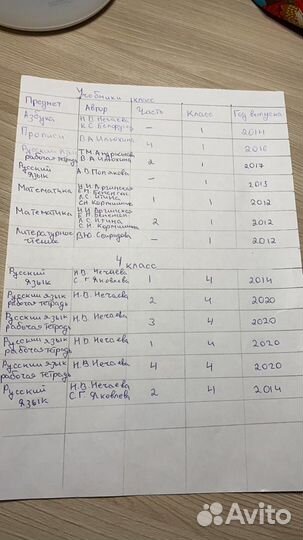 Учебники 1 класс
Предмет Автор Часть Класс Год выпуска
Азбука Н.В. Нечаева
К.С. Белорусец — 1 2011
Прописи Н.А. Андрианова 4 1 2016
Русский язык Т.М. Андрианова
рабочая тетрадь В.А. Илюхина 2 1 2017
Русский
язык А.В. Полякова — 1 2013
Математика И.И. Аргинская
Е.П. Бененсон
Л.С. Итина
С.Н. Кормишина 1 1 2012
Математика И.И. Аргинская
Е.П. Бененсон
Л.С. Итина
С.Н. Кормишина 2 1 2012
Литературное
чтение В.Ю. Свиридова — 2012
4 класс
Русский
язык Н.В. Нечаева
С.Г. Яковлева 1 4 2014
Русский язык
рабочая тетрадь Н.В. Нечаева 2 4 2020
Русский язык
рабочая тетрадь Н.В. Нечаева 3 4 2020
Русский язык
рабочая тетрадь Н.В. Нечаева 1 4 2020
Русский язык
рабочая тетрадь Н.В. Нечаева 4 4 2020
Русский
язык Н.В. Нечаева
С.Г. Яковлева 2 4 2014
Avito